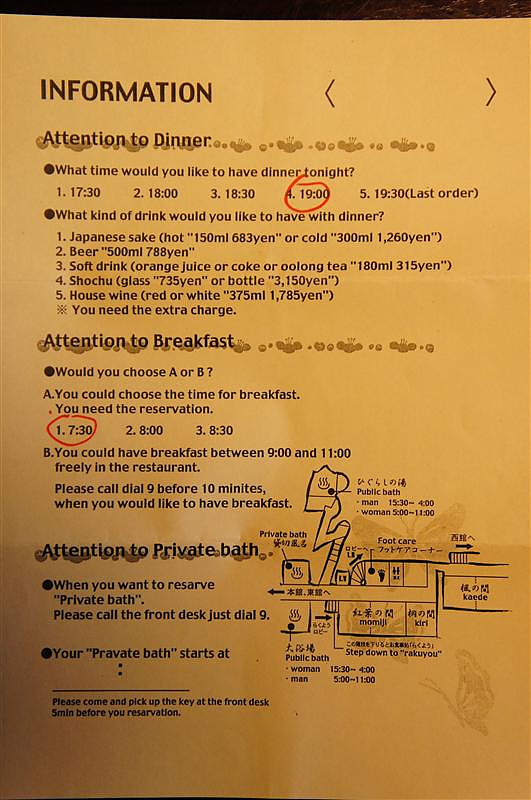 INFORMATION 〈 〉
Attention to Dinner
●What time would you like to have dinner tonight?
1. 17:30 2. 18:00 3. 18:30 4. 19:00 5. 19:30(Last order)
●What kind of drink would you like to have with dinner?
1. Japanese sake (hot "150ml 683yen" or cold "300ml 1,260yen")
2. Beer "500ml 788yen"
3. Soft drink (orange juice or coke or oolong tea "180ml 315yen")
4. Shochu (glass "735yen" or bottle "3,150yen")
5. House wine (red or white "375ml 1,785yen")
※ You need the extra charge.
Attention to Breakfast
●Would you choose A or B ?
A.You could choose the time for breakfast.
You need the reservation.
1. 7:30 2. 8:00 3. 8:30
B.You could have breakfast between 9:00 and 11:00
freely in the restaurant.
Please call dial 9 before 10 minites,
when you would like to have breakfast.
ひぐらしの湯
Public bath
・man 15:30~ 4:00
・woman 5:00~11:00
Attention to Private bath
●When you want to resarve
"Private bath".
Please call the front desk just dial 9.
●Your "Pravate bath" starts at
:
Please come and pick up the key at the front desk
5min before you resarvation.
Private bath
貸切風呂
Foot care
フットケアコーナー
ロビーへ
西館へ
EV
本館、東館へ
楓の間
kaede
紅葉の間
momiji
桐の間
kiri
らくよう
ロビー
この階段を下りるとお食事処「らくよう」
Step down to "rakuyou"
大浴場
Public bath
・woman 15:30~ 4:00
・man 5:00~11:00